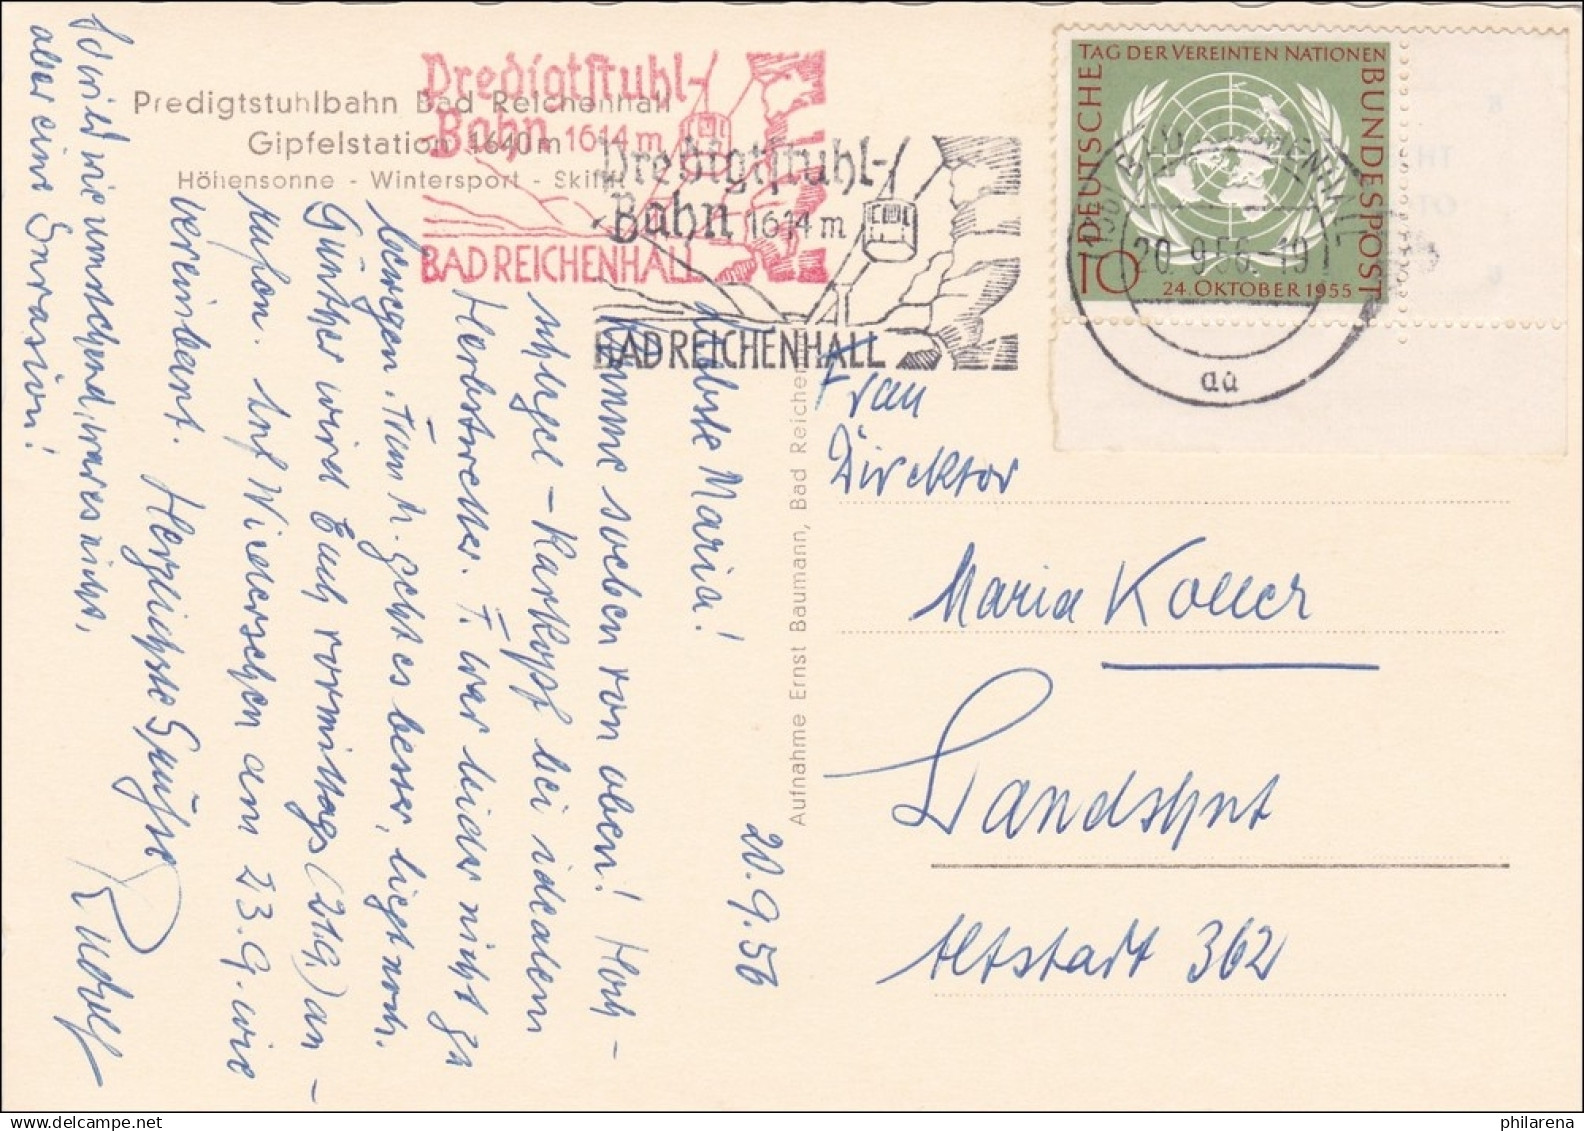 Predigtstuhlbahn Bad Reichenhall
Gipfelstation 1640 m
Höhensonne - Wintersport - Skilift
Predigtstuhl-
-Bahn 1614 m
BAD REICHENHALL
Predigtstuhl-
-Bahn 1614 m
BAD REICHENHALL
TAG DER VEREINTEN NATIONEN
DEUTSCHE
BUNDESPOST
10
24. OKTOBER 1955
20.9.56.-19
aa
Aufnahme Ernst Baumann, Bad Reichen
20.9.56
Maria!
Komme soeben von oben! Hoch-
schlegel - Karkopf bei idealem
Herbstwetter. F. war leider nicht zu
bewegen. Tum h. geht es besser, liegt noch.
Günther wird Euch vormittags (21.9.) an-
rufen. Auf Wiedersehen am 23.9. wie
vereinbart. Herzlichste Grüße
Rudolf
wie umstehend, war es nicht,
aber eine Invasion!
Frau
Direktor
Maria Koller
Landshut
Altstadt 362
philarena.com